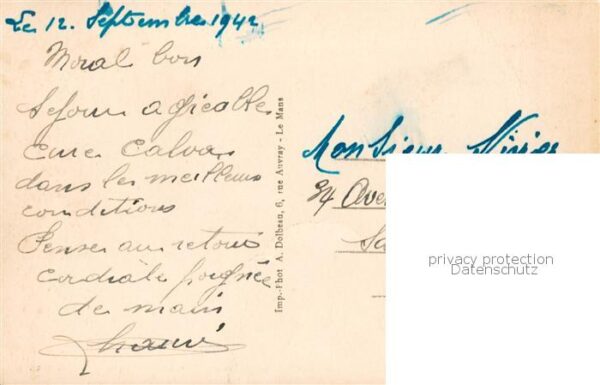 Le 12. Septembre 1942
Moral bon
Sejour agréable
cure
dans les meilleurs
conditions
Penser au retour
cordiale poignée
de main
Imp.-Phot A. Dolbeau, 6, rue Auvray - Le Mans
Monsieur
34 Ave
privacy protection
Datenschutz